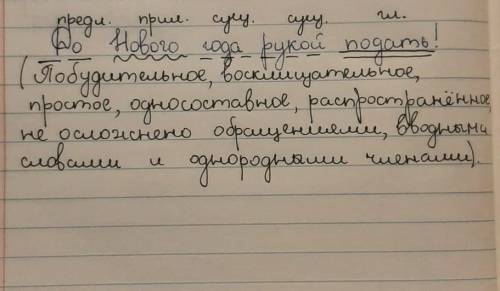 предл. прил. сущ. сущ. гл.
До Нового года рукой подать!
(Побудительное, восклицательное,
простое, односоставное, распространённое,
не осложнено обращениями, вводными
словами и однородными членами).